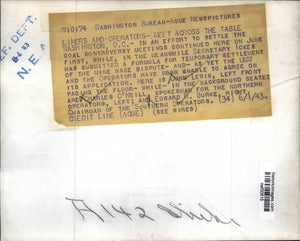 W710174 WASHINGTON BUREAU-ACME NEWSPICTURES
MINERS AND OPERATORS MEET ACROSS THE TABLE
WASHINGTON, D.C.-- IN AN EFFORT TO SETTLE THE
COAL CONTROVERSY MEETINGS CONTINUED HERE ON JUNE
FIRST, WHILE, IN THE MEANWHILE SECRETARY ICKES
HAS SUBMITTED A FORMULA FOR TEMPORARY SETTLEMENT
OF THE MINE WAGE DISPUTE-- AND AS YET THE UMW
AND THE OPERATORS HAVE BEEN UNABLE TO AGREE ON
ITS APPLICATION. HERE IS JOHN LEWIS, LEFT FRONT
PACING THE FLOOR- WHILE- IN THE BACKGROUND SEATED
ARE CHARLES O'NEILL, SPOKESMAN FOR THE NORTHERN
OPERATORS, LEFT; AND EDWARD R. BURKE, RIGHT
CHAIRMAN OF THE SOUTHERN OPERATORS, (34) 6/1/43.
CREDIT LINE (ACME) (SEE WIRES)
REF. DEPT.
N. E. A.
A 142